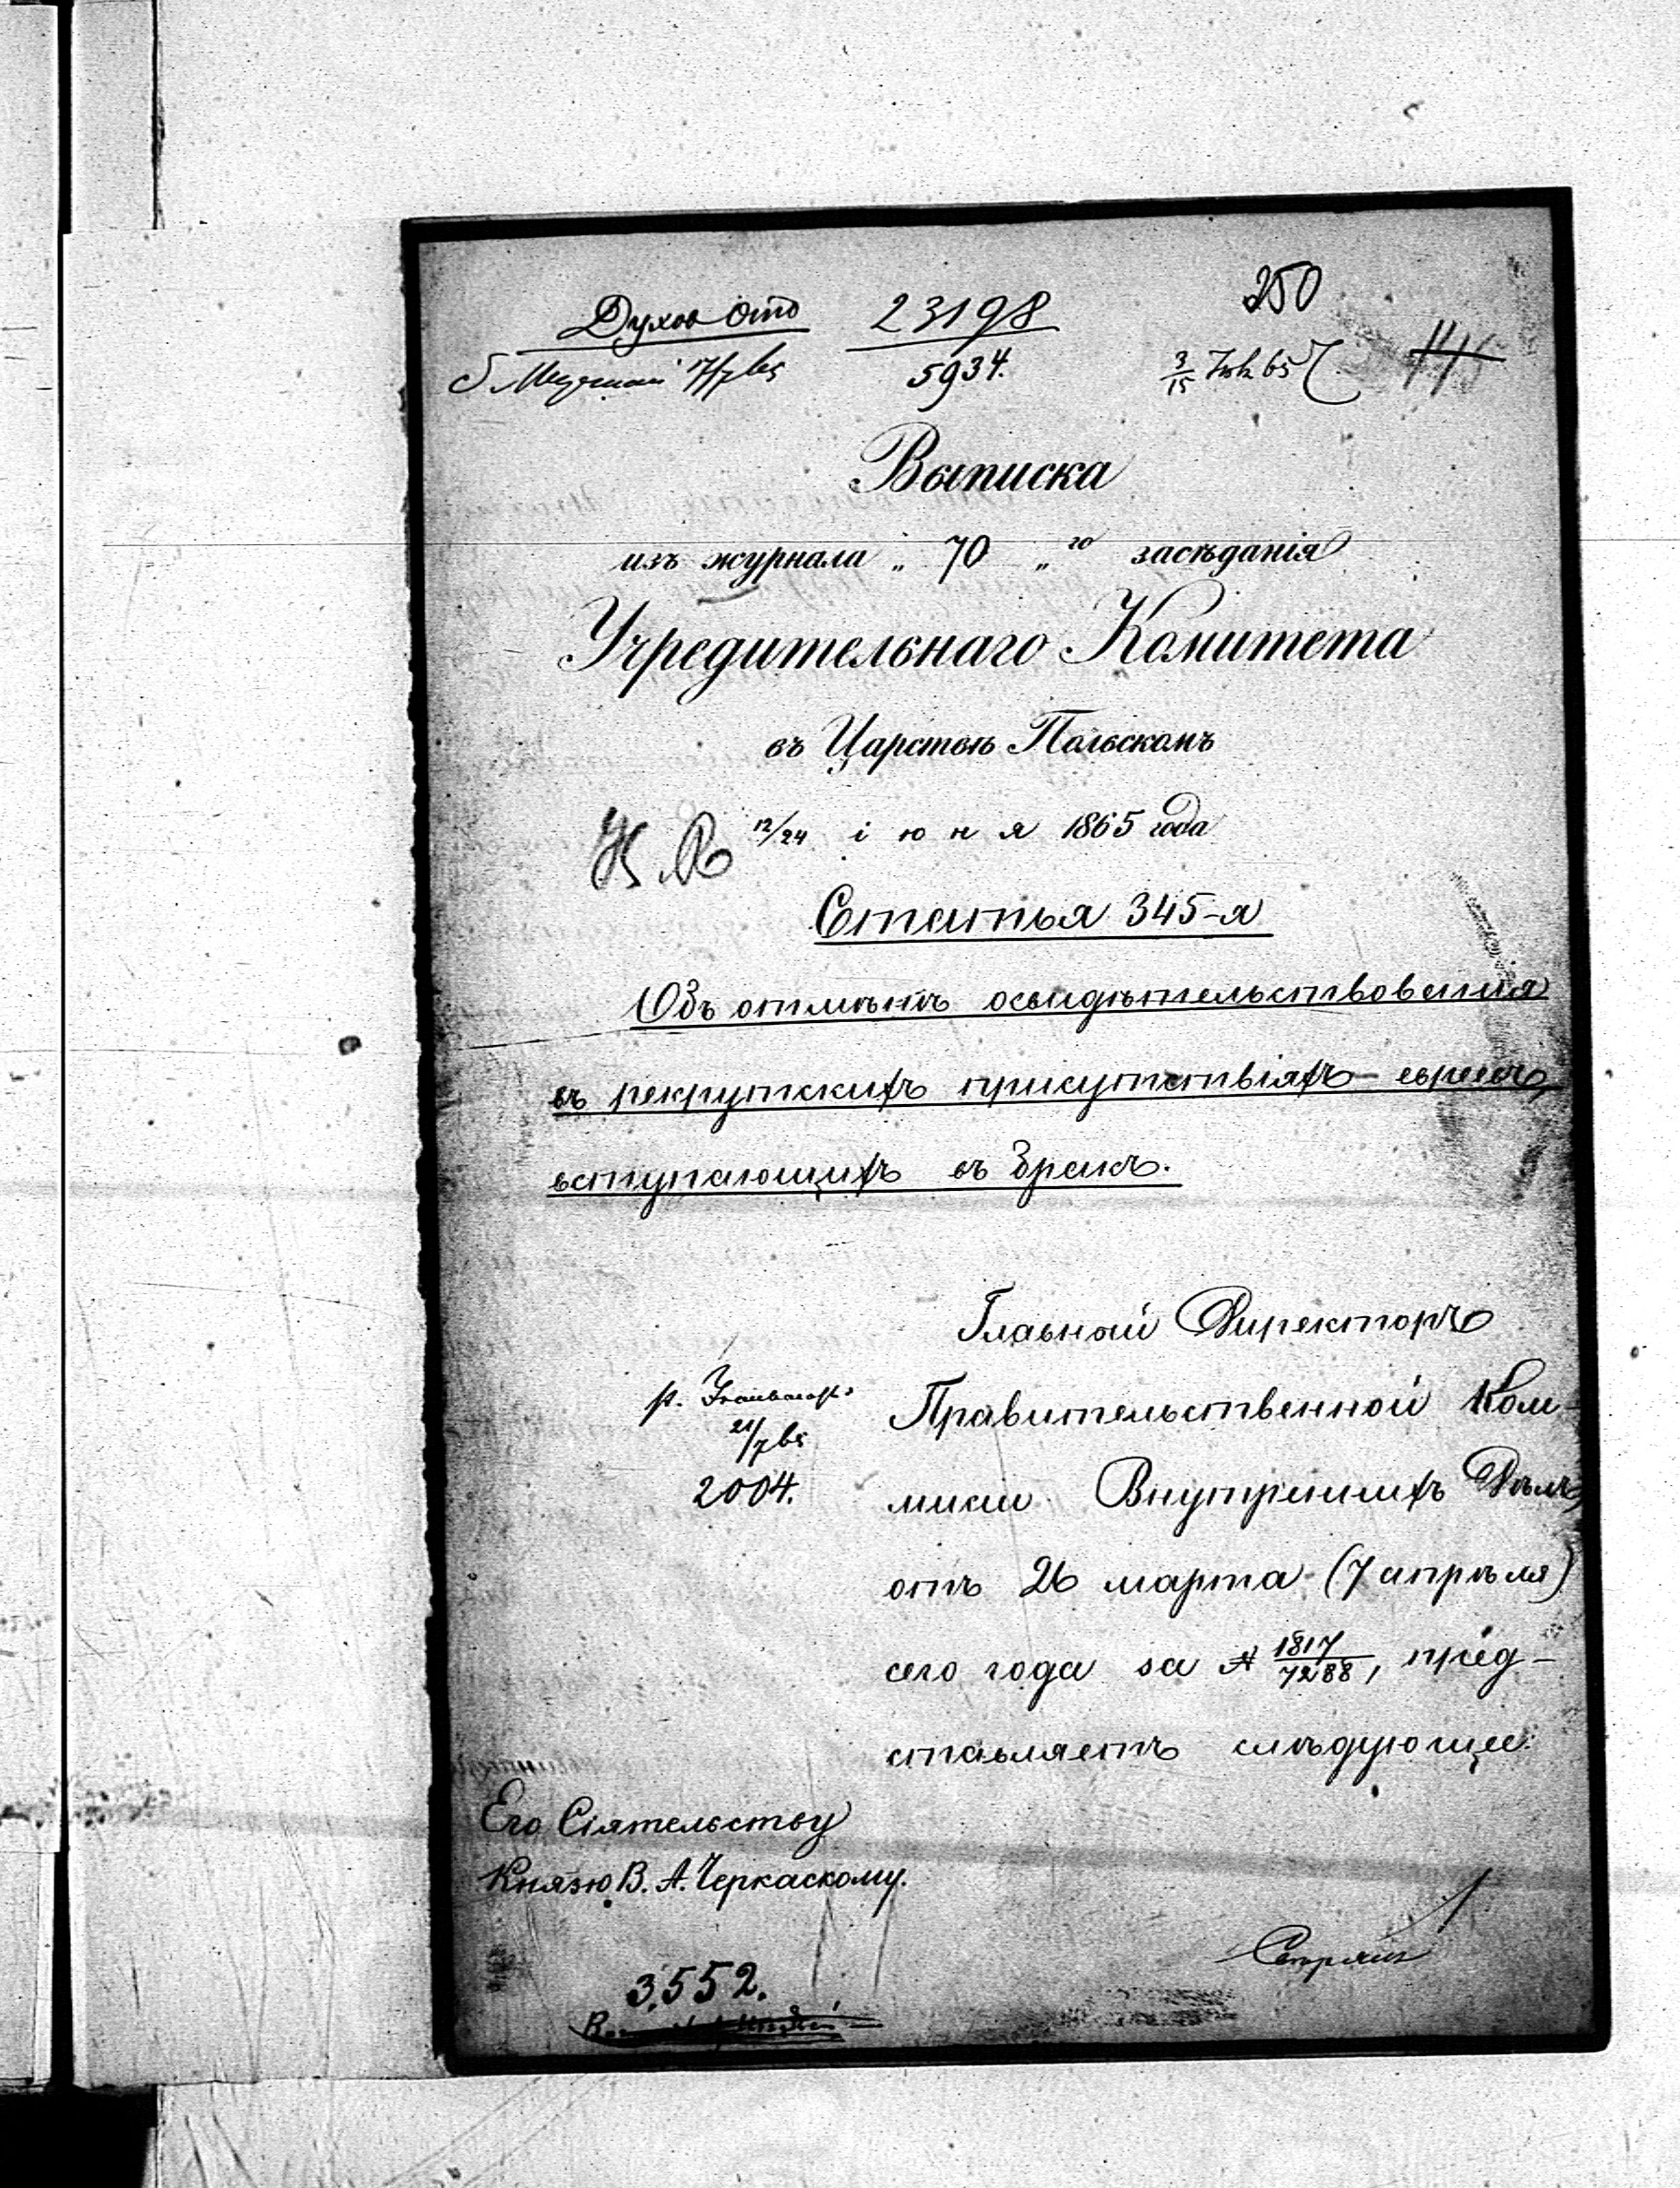 250
Духов Отд 23198
5934. 3/15 65
Выписка
изъ журнала „ 70 „ го засѣданія
Учредительнаго Комитета
въ Царствѣ Польскомъ
12/24 іюня 1865 года
Статья 345-я
Объ отмѣнѣ освидѣтельствованія
въ рекрутскихъ присутствіяхъ евреевъ,
вступающихъ въ бракъ.
Главный Директоръ
Правительственной Ком-
мисіи Внутреннихъ Дѣлъ,
отъ 26 марта (7 апрѣля)
сего года за № 1817/7288, пред-
ставляетъ слѣдующее:
21/7 65
2004.
Его Сіятельству
Князю В. А. Черкаскому.
3552.